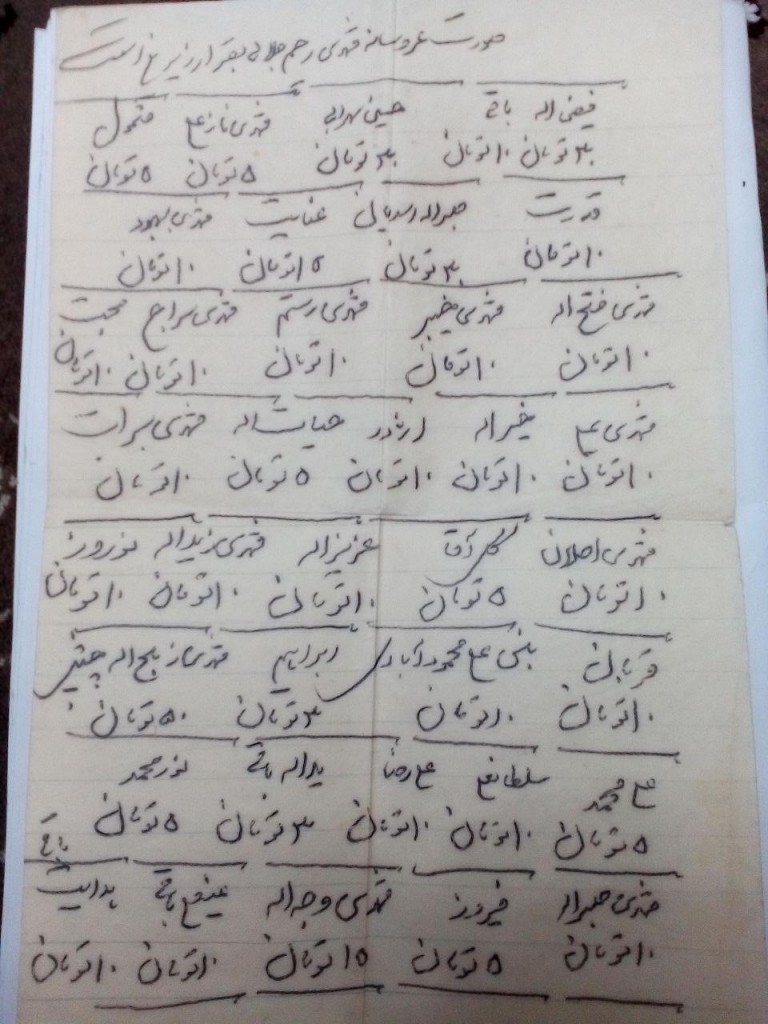 صورت عروسانه مهدی رحم جلالی بقرار زیر است
فیض اله باقی حسین سهرابی مهدی نازعلی متمول
۳۰ تومان ۱۰ تومان ۳۰ تومان ۵ تومان ۵ تومان
قدرت صبراله عنایت مهدی بهبود
۱۰ تومان ۳۰ تومان ۱۵ تومان ۱۰ تومان
مهدی فتح اله مهدی خیبر مهدی رستم مهدی سراج محبت
۱۰ تومان ۱۰ تومان ۱۰ تومان ۱۰ تومان ۱۰ تومان
مهدی علی خیراله اژدر حیات اله مهدی برات
۱۰ تومان ۱۰ تومان ۱۰ تومان ۵ تومان ۱۰ تومان
مهدی اصلان گل آقا عزیزاله مهدی یزیداله نوروز
۱۰ تومان ۵ تومان ۱۰ تومان ۱۰ تومان ۱۰ تومان
قربان علی محمودآبادی ابراهیم مهدی ذبیح اله
۱۰ تومان ۱۰ تومان ۳ تومان ۵۰ تومان
علی محمد سلطانعلی علی رضا یداله باقی نورمحمد
۵ تومان ۱۰ تومان ۱۰ تومان ۳ تومان ۵ تومان
مهدی صبراله فیروز مهدی وجه اله عینعلی باقی هدایت باقی
۱۰ تومان ۵ تومان ۱۵ تومان ۱۰ تومان ۱۰ تومان